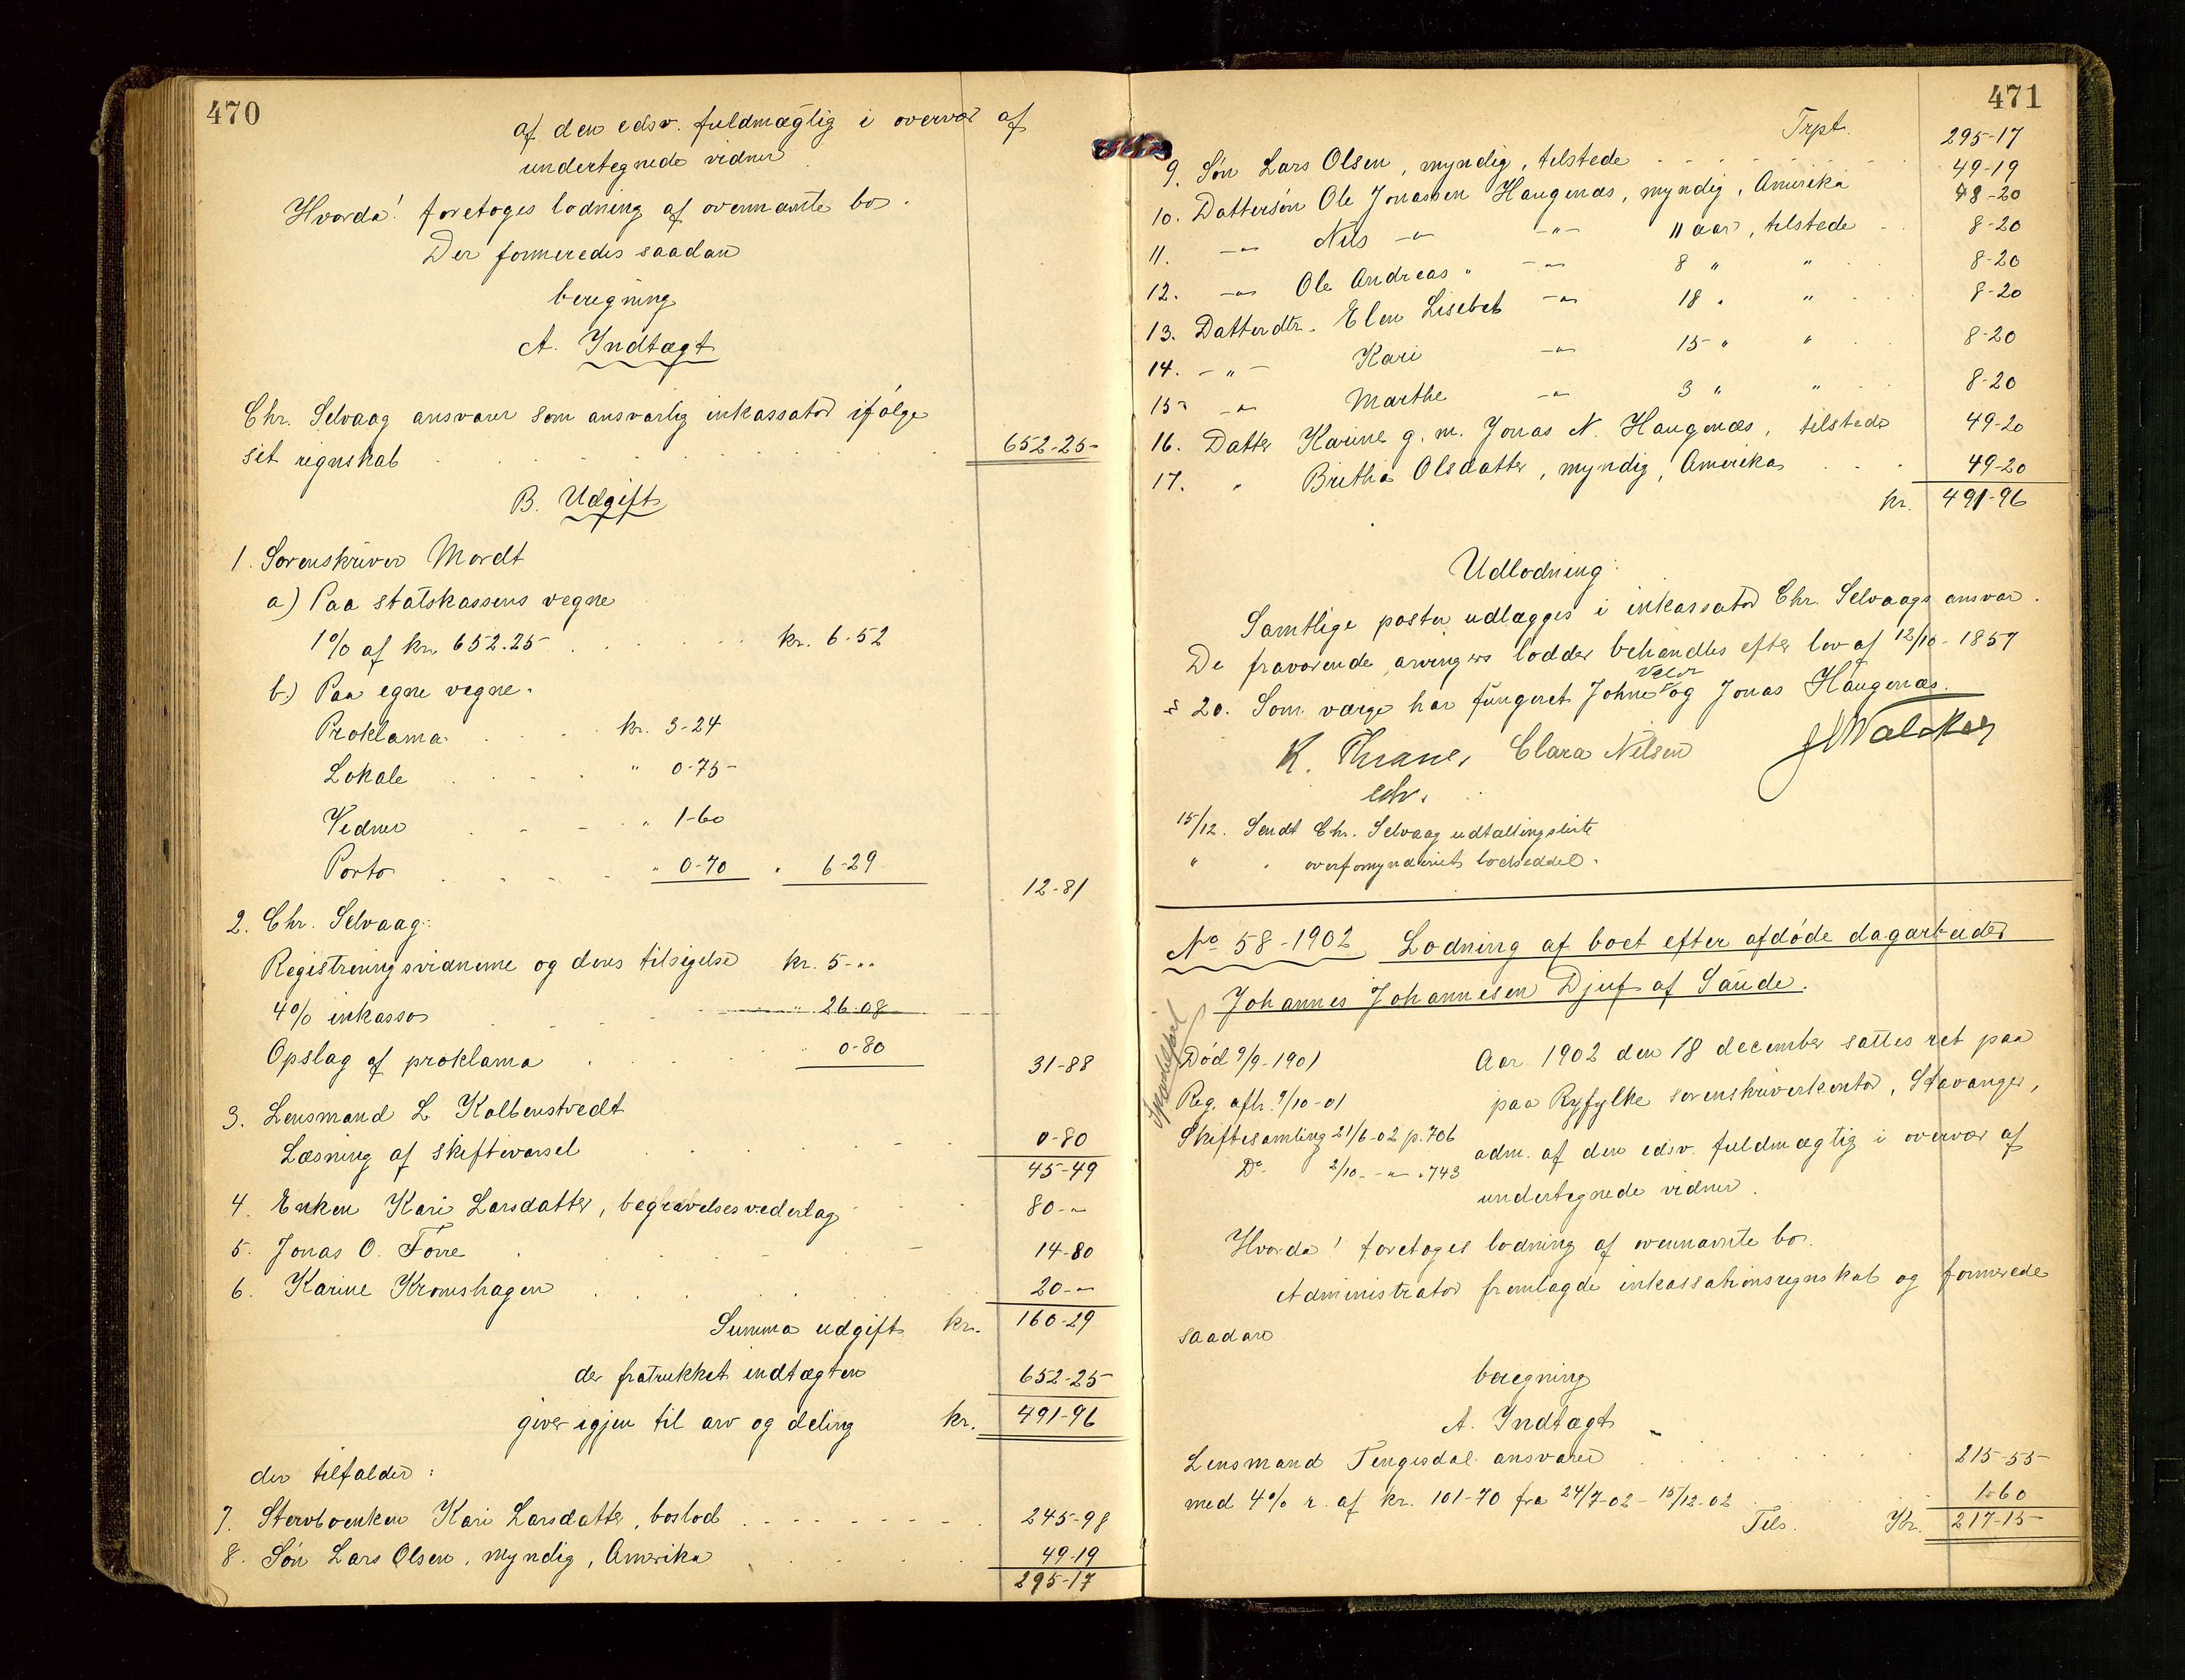 470
af den edsv. fuldmægtig i overvær af
undertegnede vidner
Hvorda! foretoges lodning af ovennævnte bo.
Der formeredes saadan
beregning
A. Indtægt
Chr. Selvaag ansvarer som ansvarlig inkassator ifølge
sit regnskab 652-25
B. Udgift
1. Sorenskriver Mordt
a) Paa statskassens vegne
1% af kr. 652.25 kr. 6-52
b.) Paa egne vegne.
Proklama kr. 3-24
Lokale " 0-75
Vidner " 1-60
Porto " 0-70 " 6-29
12-81
2. Chr. Selvaag:
Registreringsvidnerne og deres tilsigelse kr. 5-"
4% inkasso " 26-08
Opslag af proklama " 0-80
31-88
3. Lensmand L Kolbenstvedt
Læsning af skiftevarsel 0-80
45-49
4. Enken Kari Larsdatter, begravelsesvederlag 80-"
5. Jonas O. Førre 14-80
6. Karine Kromshagen 20-"
Summa udgift kr. 160-29
der fratrukket indtægten 652-25
giver igjen til arv og deling kr. 491-96
der tilfalder:
7. Stervboenken Kari Larsdatter, boslod 245-98
8. Søn Lars Olsen, myndig, Amerika 49-19
295-17
471
Trpt. 295-17
9. Søn Lars Olsen, myndig, tilstede 49-19
10. Dattersøn Ole Jonassen Haugenæs, myndig, Amerika 48-20
11. -"- Nils -"- -"- 11 aar, tilstede 8-20
12. -"- Ole Andreas " -"- 8 " " 8-20
13. Datterdtr. Elen Lisebet -"- 18 " " 8-20
14. -"- Kari -"- 15 " " 8-20
15 -"- Marthe -"- 3 " " 8-20
16. Datter Karine g. m. Jonas N. Haugenæs, tilstede 49-20
17. " Britha Olsdatter, myndig, Amerika 49-20
kr. 491-96
Udlodning:
Samtlige poster udlægges i inkassator Chr. Selvaags ansvar.
De fraværende arvingers lodder behandles efter lov af 12/10-1857
§ 20. Som værge har fungeret Johne og Jonas Haugenæs.
K. Thrane, Clara Nilsen
edv.
15/12. Sendt Chr. Selvaag udtællingsliste
" " overformynderiet lodseddel.
No 58-1902 Lodning af boet efter afdøde dagarbeider
Johannes Johannesen Djuf af Saude.
Død 9/9-1901
Reg. afh. 9/10-01
Skiftesamling 21/6-02 p. 706
Do 2/10 - " - " 743
Aar 1902 den 18 december sattes ret paa
paa Ryfylke sorenskriverkontor, Stavanger,
adm. af den edsv. fuldmægtig i overvær af
undertegnede vidner.
Hvorda! foretoges lodning af ovennævnte bo.
Administrator fremlagde inkassationsregnskab og formerede
saadan
beregning
A. Indtægt
Lensmand Tengesdal ansvarer 215-55
med 4% r. af kr. 101-70 fra 24/7-02 - 15/12-02 1-60
Tils. Kr. 217-15